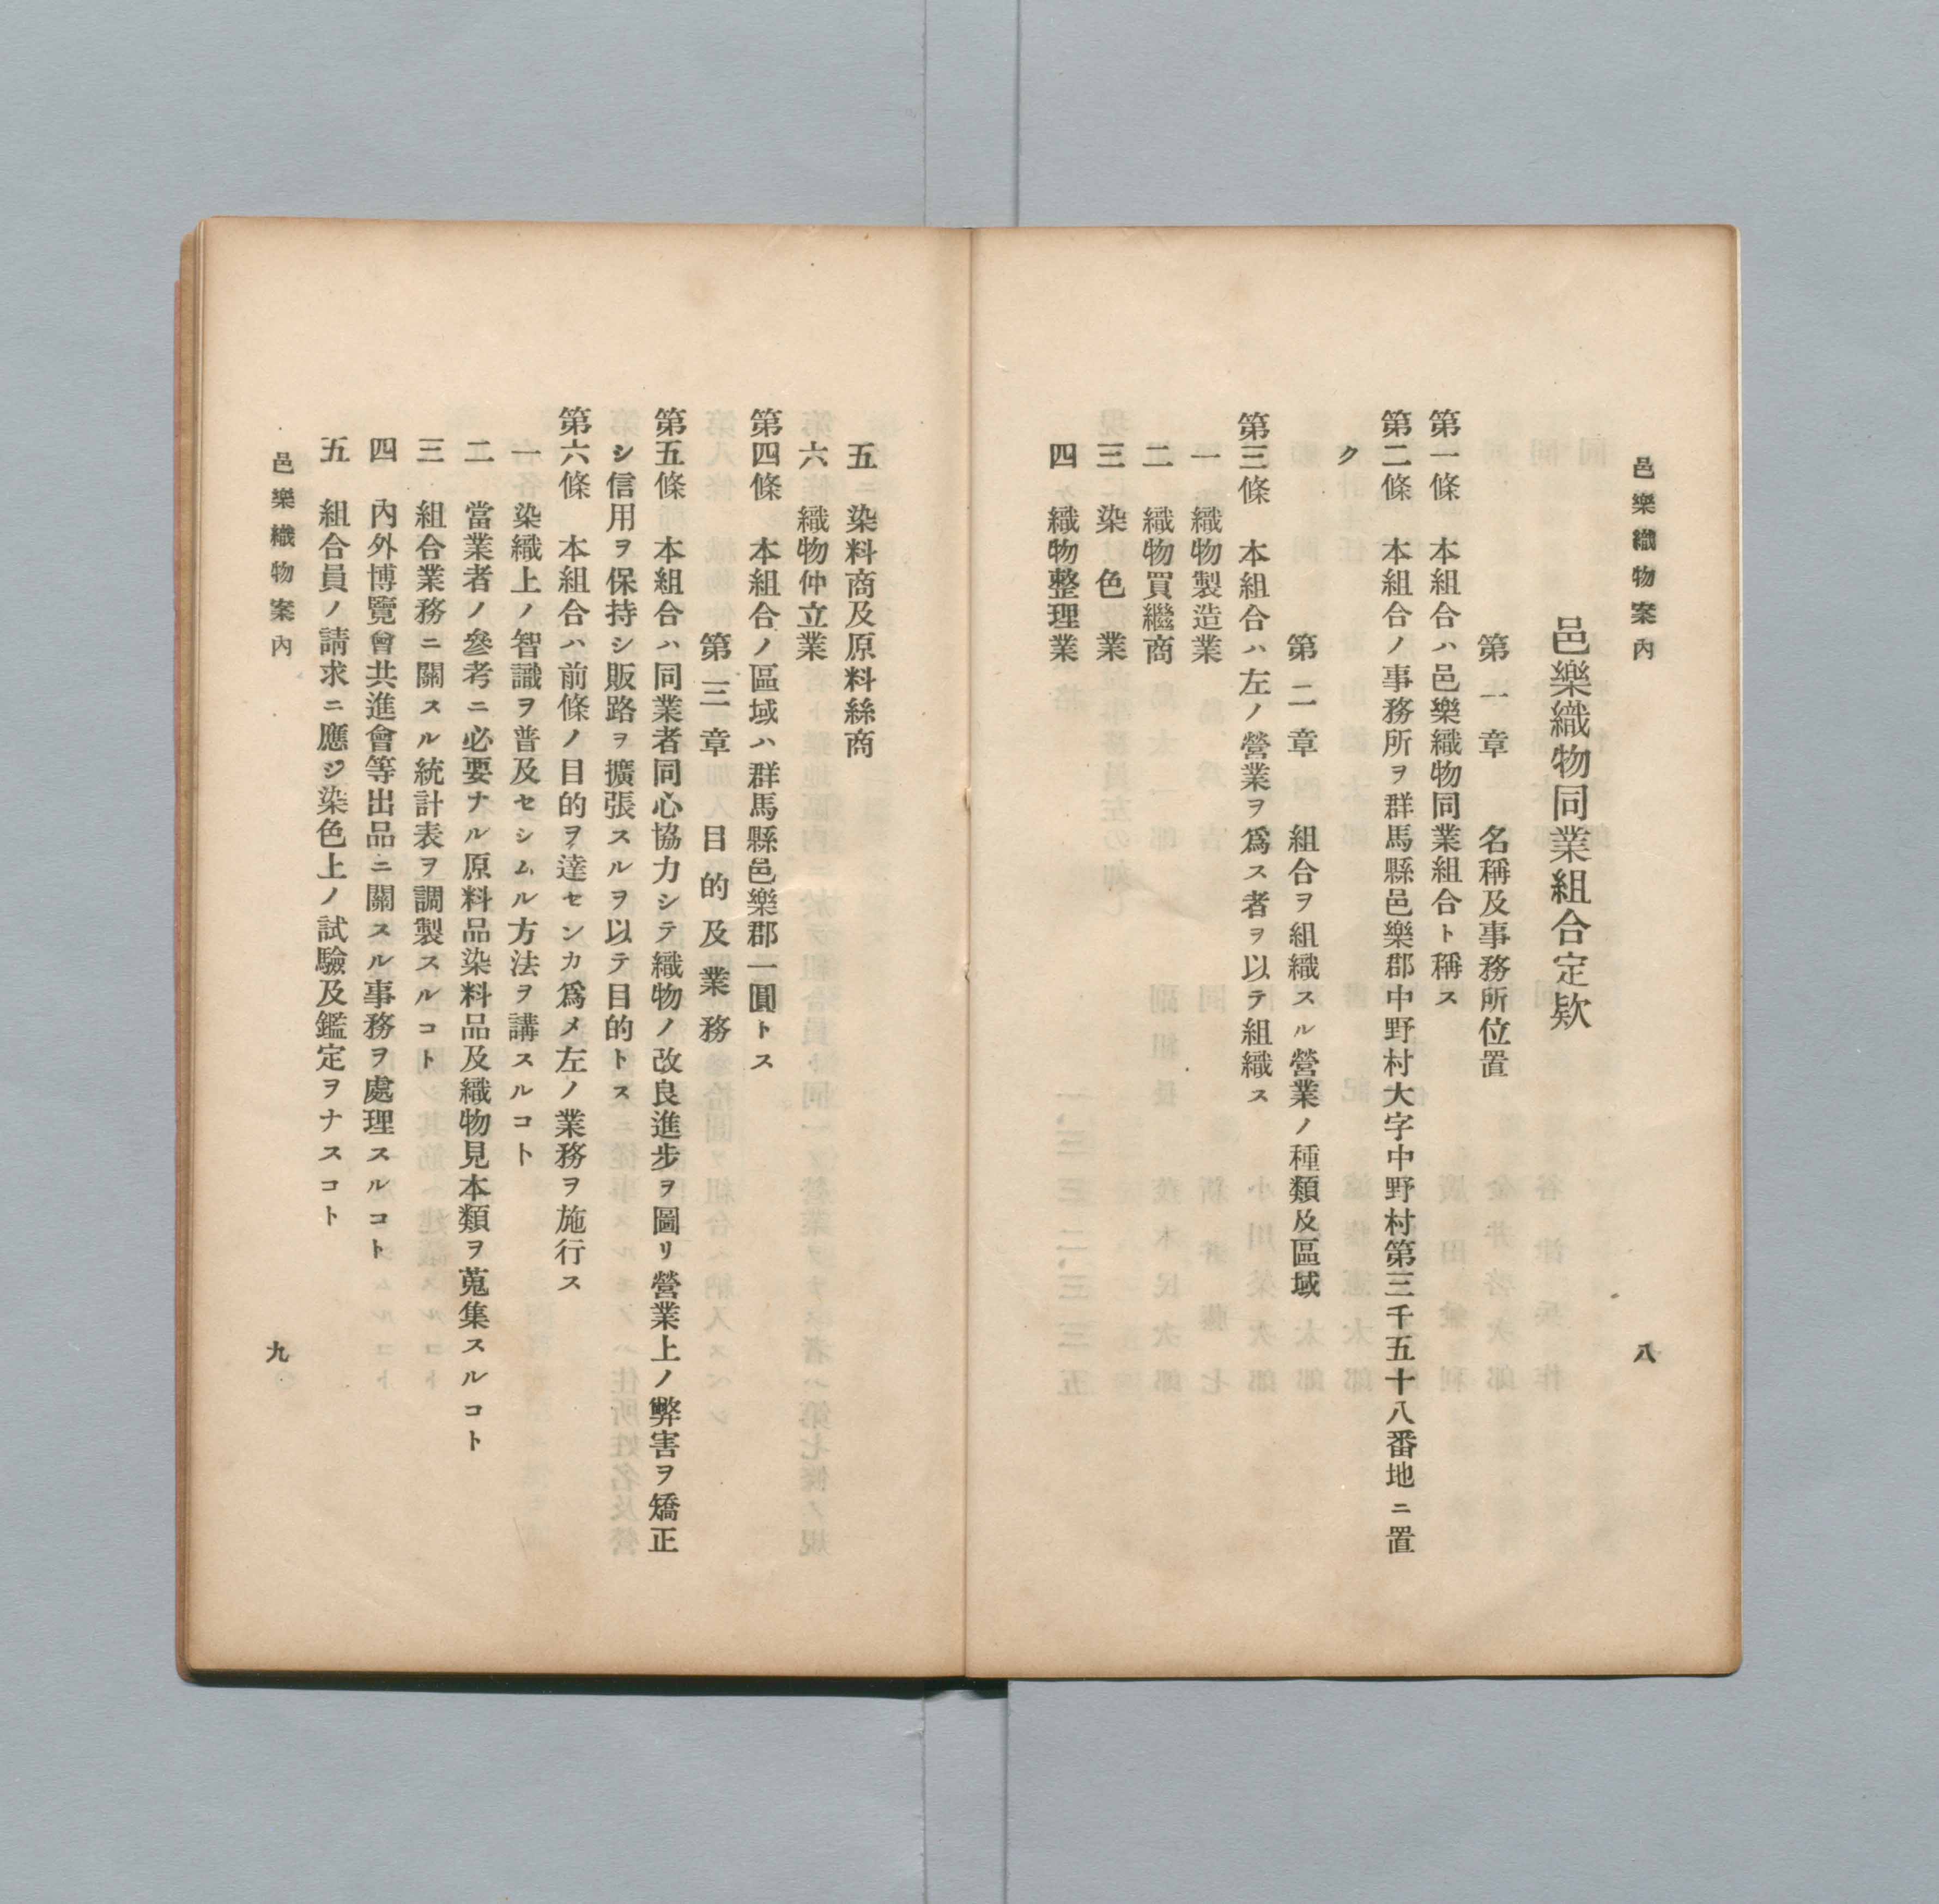 邑樂織物案內
八
邑樂織物同業組合定欵
第一章　名稱及事務所位置
第一條　本組合ハ邑樂織物同業組合ト稱ス
第二條　本組合ノ事務所ヲ群馬縣邑樂郡中野村大字中野村第三千五十八番地ニ置
ク
第二章　組合ヲ組織スル營業ノ種類及區域
第三條　本組合ハ左ノ營業ヲ爲ス者ヲ以テ組織ス
一　織物製造業
二　織物買繼商
三　染色業
四　織物整理業
五　染料商及原料絲商
六　織物仲立業
第四條　本組合ノ區域ハ群馬縣邑樂郡一圓トス
第三章　目的及業務
第五條　本組合ハ同業者同心協力シテ織物ノ改良進步ヲ圖リ營業上ノ弊害ヲ矯正
シ信用ヲ保持シ販路ヲ擴張スルヲ以テ目的トス
第六條　本組合ハ前條ノ目的ヲ達センカ爲メ左ノ業務ヲ施行ス
一　染織上ノ智識ヲ普及セシムル方法ヲ講スルコト
二　當業者ノ參考ニ必要ナル原料品染料品及織物見本類ヲ蒐集スルコト
三　組合業務ニ關スル統計表ヲ調製スルコト
四　內外博覽會共進會等出品ニ關スル事務ヲ處理スルコト
五　組合員ノ請求ニ應ジ染色上ノ試驗及鑑定ヲナスコト
邑樂織物案內
九